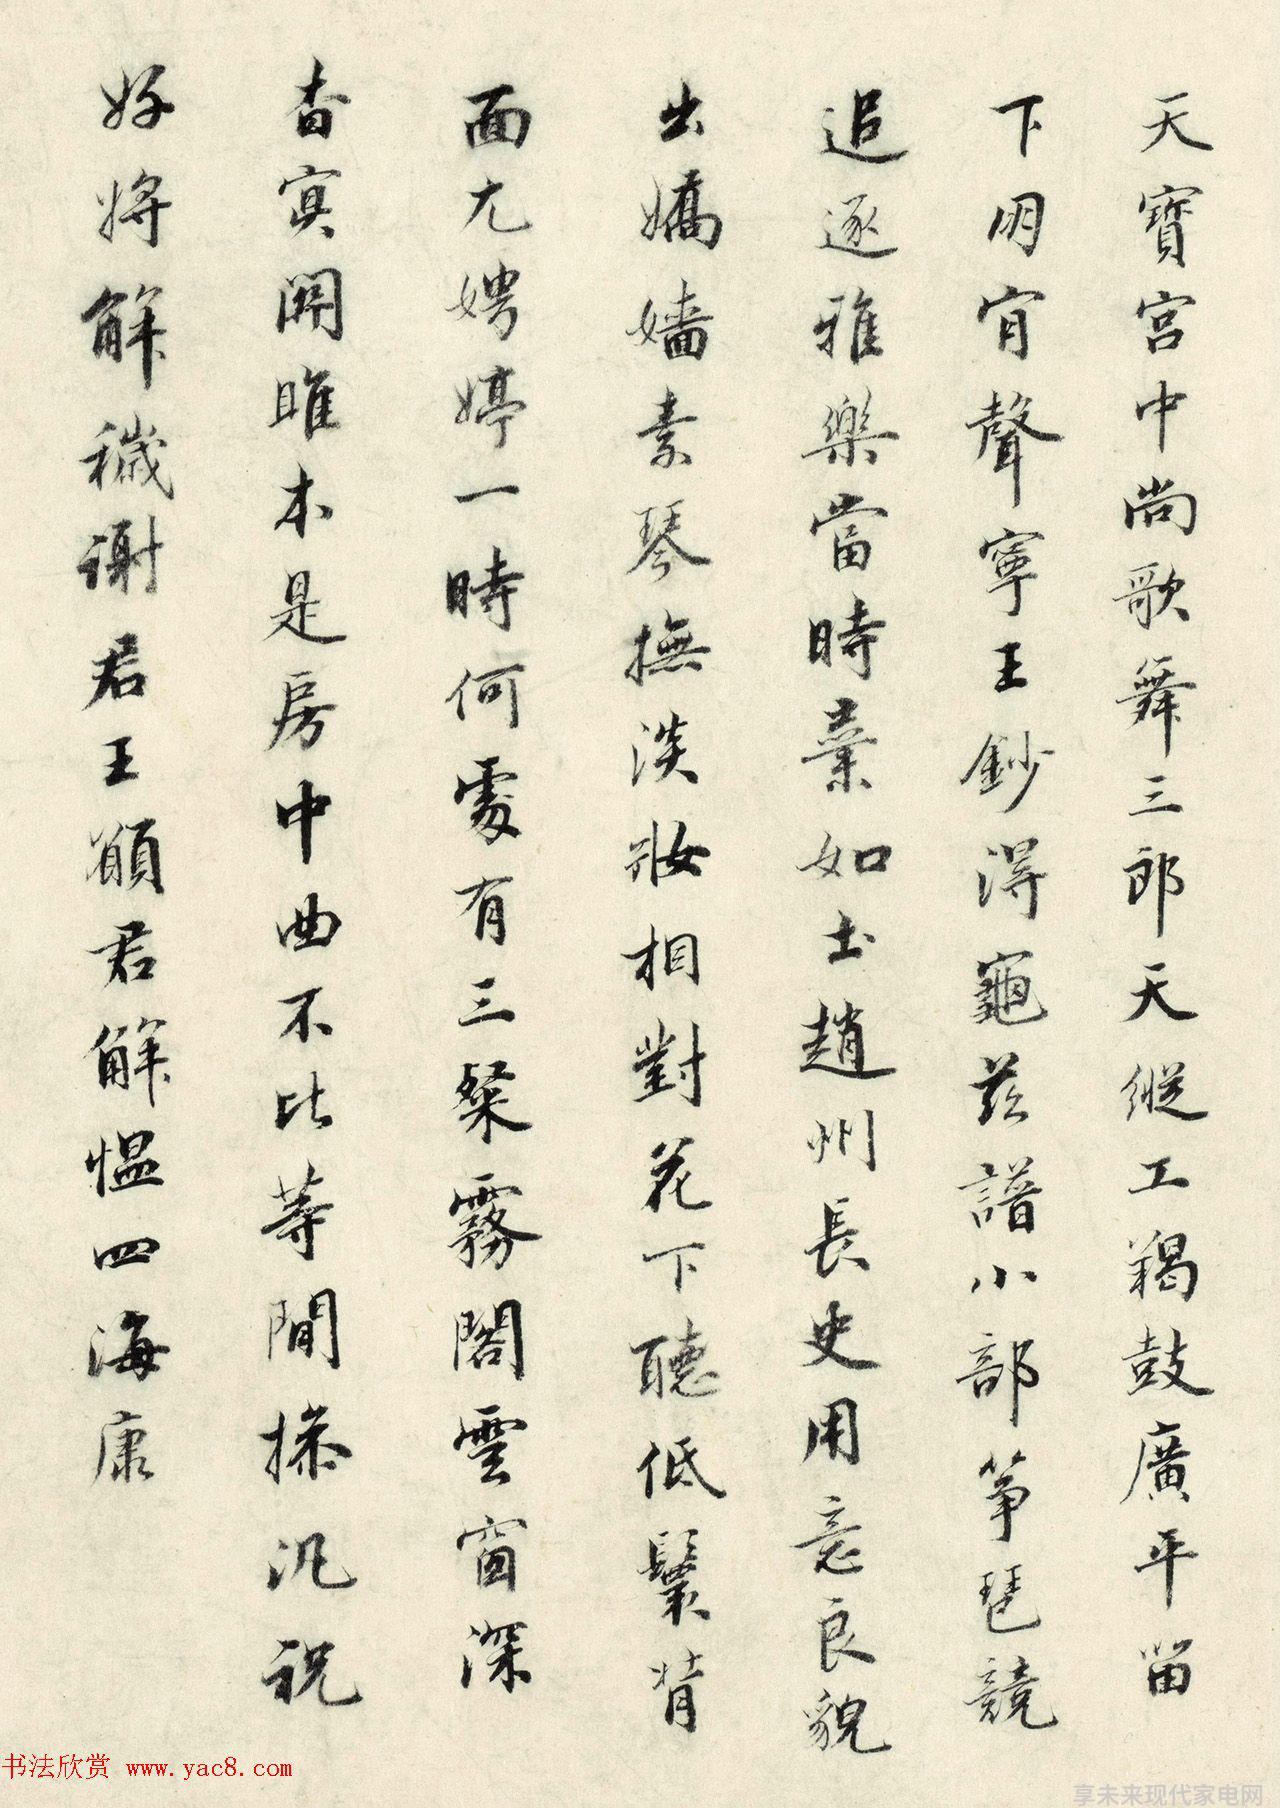 天寶宮中尚歌舞三郎天縱工羯鼓廣平留
下明宵聲寧王鈔得龜茲譜小部箏琶競
追逐雅樂當時棄如土趙州長史用意良貌
出嬌嬙素琴撫淡妝相對花下聽低鬟背
面尤娉婷一時何處有三粲霧閣雲窗深
杳冥關雎本是房中曲不比等閒操汎祝
好將解穢謝君王願君解慍四海康
书法欣赏 www.yac8.com
享未来现代家电网